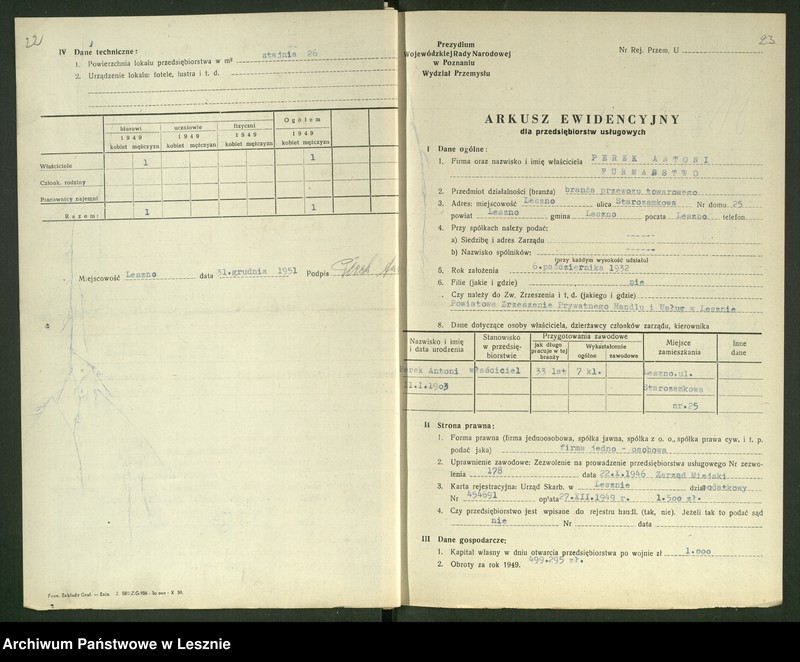 22
IV Dane techniczne:
1. Powierzchnia lokalu przedsiębiorstwa w m² stajnia 26
2. Urządzenie lokalu: fotele, lustra i t. d.
biurowi uczniowie fizyczni Ogółem
1949 1949 1949 1949
kobiet mężczyzn kobiet mężczyzn kobiet mężczyzn kobiet mężczyzn
Właściciele 1 1
Członk. rodziny
Pracownicy najemni
Razem: 1 1
Miejscowość Leszno data 31.grudnia 1951 Podpis
Pozn. Zakłady Graf. — Żnin
23
Prezydium
Wojewódzkiej Rady Narodowej
w Poznaniu
Wydział Przemysłu
Nr Rej. Przem. U
ARKUSZ EWIDENCYJNY
dla przedsiębiorstw usługowych
I Dane ogólne:
1. Firma oraz nazwisko i imię właściciela PEREK ANTONI
FURMAŃSTWO
2. Przedmiot działalności (branża) branża przewozu towarowego
3. Adres: miejscowość Leszno ulica Starozamkowa Nr domu 25
powiat Leszno gmina Leszno poczta Leszno telefon
4. Przy spółkach należy podać:
a) Siedzibę i adres Zarządu
b) Nazwisko spólników:
(przy każdym wysokość udziału)
5. Rok założenia 6.października 1932
6. Filie (jakie i gdzie) nie
. Czy należy do Zw. Zrzeszenia i t. d. (jakiego i gdzie)
Powiatowe Zrzeszenie Prywatnego Handlu i Usług w Lesznie
8. Dane dotyczące osoby właściciela, dzierżawcy członków zarządu, kierownika
Nazwisko i imię i data urodzenia
Stanowisko w przedsię-biorstwie
Przygotowania zawodowe
jak długo pracuje w tej branży
Wykształcenie
ogólne zawodowe
Miejsce zamieszkania
Inne dane
Perek Antoni właściciel 33 lat 7 kl. Leszno.ul.
11.I.1903 Starozamkowa
nr.25
II Strona prawna:
1. Forma prawna (firma jednoosobowa, spółka jawna, spółka z o. o., spółka prawa cyw. i t. p.
podać jaka) firma jedno - osobowa
2. Uprawnienie zawodowe: Zezwolenie na prowadzenie przedsiębiorstwa usługowego Nr zezwo-
lenia 178 data 22.X.1946 Zarząd Miejski
3. Karta rejestracyjna: Urząd Skarb. w Lesznie dział podatkowy
Nr 454691 opłata 27.XII.1949 r. 1.500 zł.
4. Czy przedsiębiorstwo jest wpisane do rejestru handl. (tak, nie). Jeżeli tak to podać sąd
nie Nr data
III Dane gospodarcze:
1. Kapitał własny w dniu otwarcia przedsiębiorstwa po wojnie zł 1.000
2. Obroty za rok 1949. 499.295 zł.
Archiwum Państwowe w Lesznie